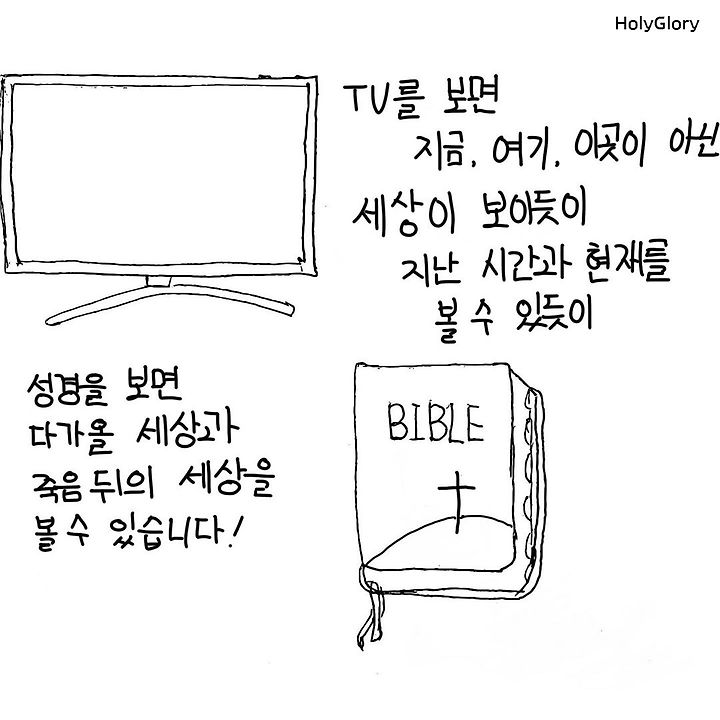 HolyGlory
TV를 보면
지금, 여기, 이곳이 아닌
세상이 보이듯이
지난 시간과 현재를
볼 수 있듯이
성경을 보면
다가올 세상과
죽음 뒤의 세상을
볼 수 있습니다!
BIBLE